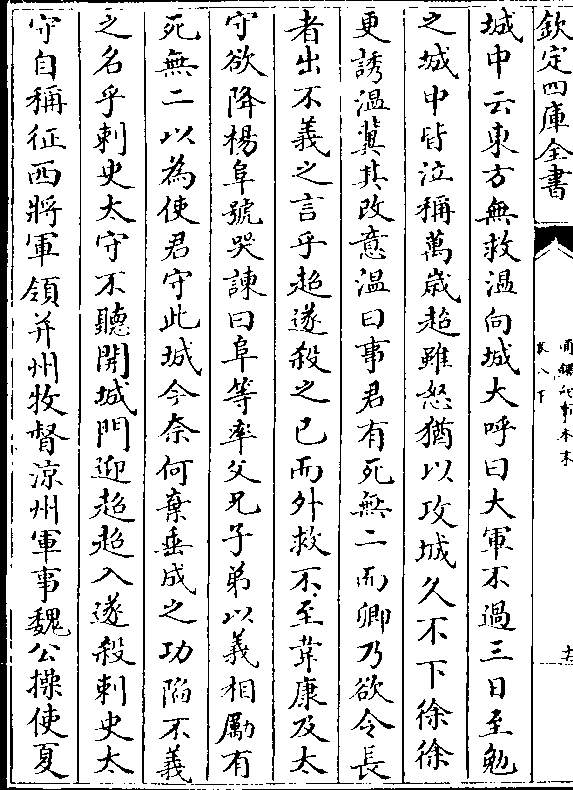 欽定四庫全書
通鑑紀事本末
卷八下
城中云東方無救溫向城大呼曰大軍不過三日至勉
之城中皆泣稱萬歲超雖怒猶以攻城久不下徐徐
更誘溫冀其改意溫曰事君有死無二而卿乃欲令長
者出不義之言乎超遂殺之已而外救不至韋康及太
守欲降楊阜號哭諫曰阜等率父兄子弟以義相勵有
死無二以為使君守此城今奈何棄垂成之功陷不義
之名乎刺史太守不聽開城門迎超超入遂殺刺史太
守自稱征西將軍領并州牧督涼州軍事魏公操使夏